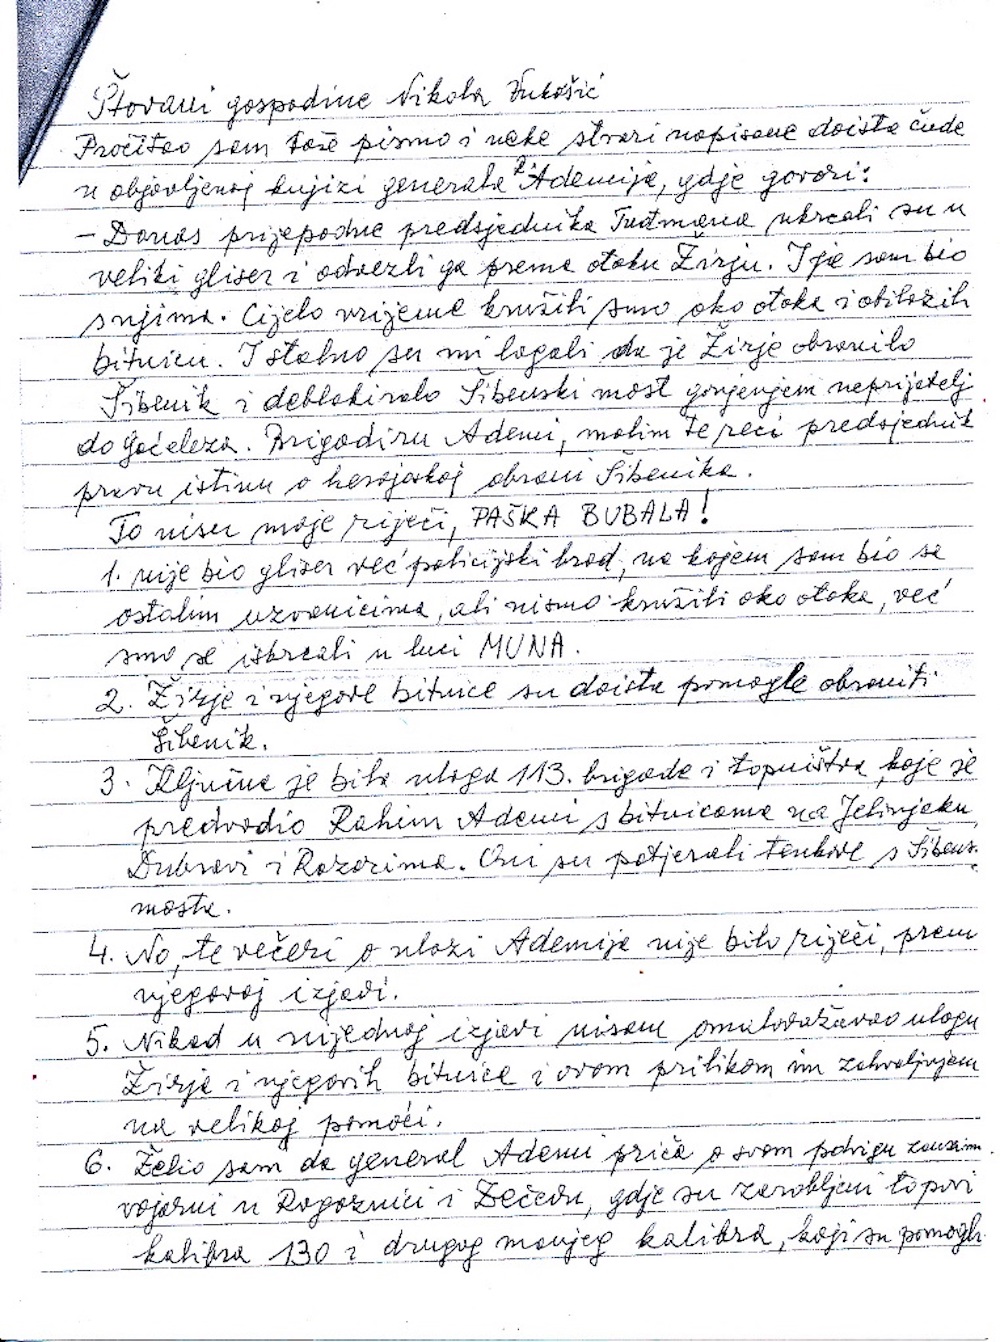 Štovani gospodine Nikola Vukošić
Pročitao sam Vaše pismo i neke stvari napisane doista čude
u objavljenoj knjizi generala R. Ademija, gdje govori:
- Danas prijepodne predsjednika Tuđmana ukrcali su u
veliki gliser i odvezli ga prema otoku Žirju. I ja sam bio
s njima. Cijelo vrijeme kružili smo oko otoka i obilazili
bitnicu. I stalno su mi lagali da je Žirje obranilo
Šibenik i deblokiralo Šibenski most gonjenjem neprijatelj
do Gaćeleza. Brigadiru Ademi, molim te reci predsjednik
pravu istinu o herojskoj obrani Šibenika.
To nisu moje riječi, PAŠKA BUBALA!
1. nije bio gliser već policijski brod, na kojem sam bio sa
ostalim uzvanicima, ali nismo kružili oko otoka, već
smo se iskrcali u luci MUNA.
2. Žirje i njegove bitnice su doista pomogle obraniti
Šibenik.
3. Ključna je bila uloga 113. brigade i topništva koje je
predvodio Rahim Ademi s bitnicama na Jelinjaku,
Dubravi i Razorima. Oni su potjerali tenkove s Šibens.
mosta.
4. No, te večeri o ulozi Ademija nije bilo riječi, prem
njegovoj izjavi.
5. Nikad u nijednoj izjavi nisam omalovažavao ulogu
Žirja i njegovih bitnica i ovom prilikom im zahvaljujem
na velikoj pomoći.
6. Želio sam da general Ademi priča o svom podvigu zauzim.
vojarni u Rogoznici i Zečevu, gdje su zarobljeni topovi
kalibra 130 i drugog manjeg kalibra, koji su pomogli